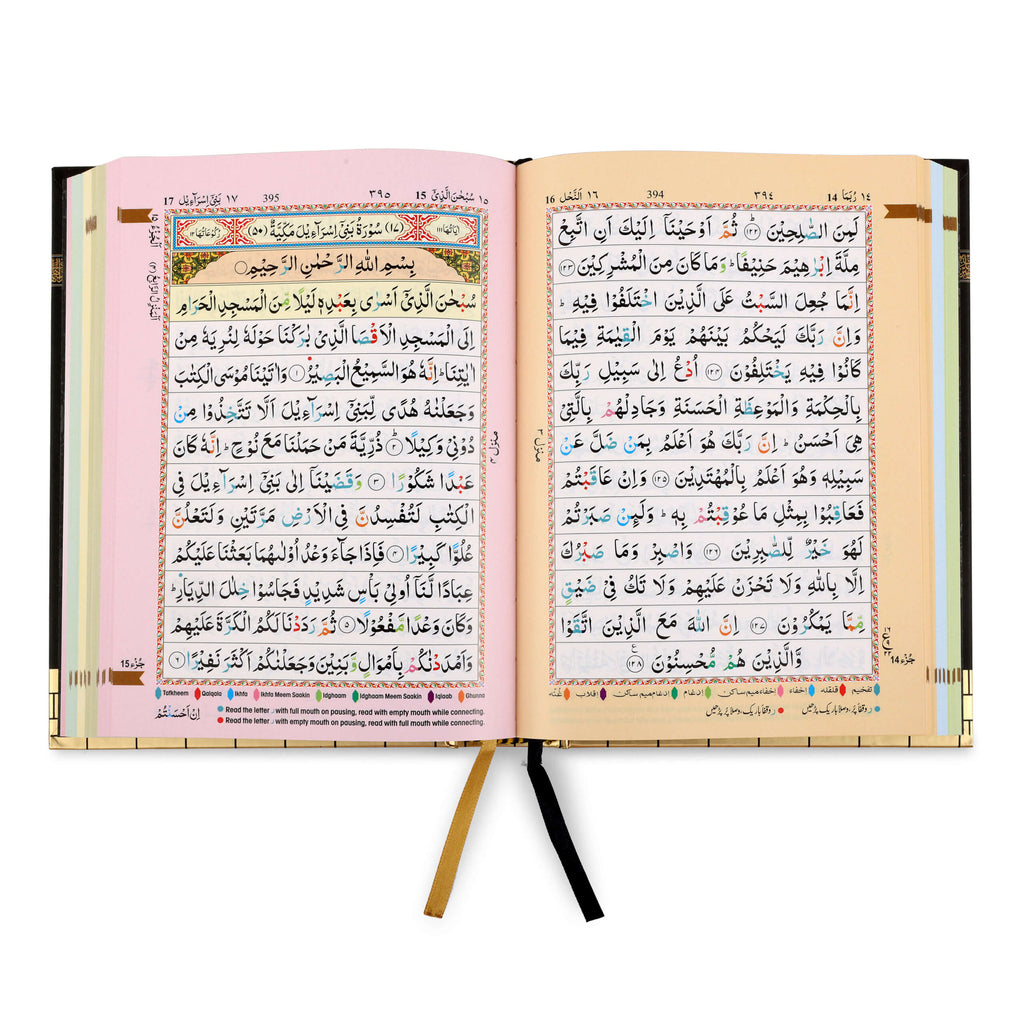 ١٤ رُبَمَا 14
٣٩٤
394
١٦ اَلنَّحْل 16
لَمِنَ الصّٰلِحِيْنَ ﴿١٢٢﴾ ثُمَّ اَوْحَيْنَآ اِلَيْكَ اَنِ اتَّبِعْ
مِلَّةَ اِبْرٰهِيْمَ حَنِيْفًا ؕ وَمَا كَانَ مِنَ الْمُشْرِكِيْنَ ﴿١٢٣﴾
اِنَّمَا جُعِلَ السَّبْتُ عَلَى الَّذِيْنَ اخْتَلَفُوْا فِيْهِ ؕ
وَاِنَّ رَبَّكَ لَيَحْكُمُ بَيْنَهُمْ يَوْمَ الْقِيٰمَةِ فِيْمَا
كَانُوْا فِيْهِ يَخْتَلِفُوْنَ ﴿١٢٤﴾ اُدْعُ اِلٰى سَبِيْلِ رَبِّكَ
بِالْحِكْمَةِ وَالْمَوْعِظَةِ الْحَسَنَةِ وَجَادِلْهُمْ بِالَّتِيْ
هِيَ اَحْسَنُ ؕ اِنَّ رَبَّكَ هُوَ اَعْلَمُ بِمَنْ ضَلَّ عَنْ
سَبِيْلِهٖ وَهُوَ اَعْلَمُ بِالْمُهْتَدِيْنَ ﴿١٢٥﴾ وَاِنْ عَاقَبْتُمْ
فَعَاقِبُوْا بِمِثْلِ مَا عُوْقِبْتُمْ بِهٖ ؕ وَلَئِنْ صَبَرْتُمْ
لَهُوَ خَيْرٌ لِّلصّٰبِرِيْنَ ﴿١٢٦﴾ وَاصْبِرْ وَمَا صَبْرُكَ
اِلَّا بِاللّٰهِ وَلَا تَحْزَنْ عَلَيْهِمْ وَلَا تَكُ فِيْ ضَيْقٍ
مِّمَّا يَمْكُرُوْنَ ﴿١٢٧﴾ اِنَّ اللّٰهَ مَعَ الَّذِيْنَ اتَّقَوْا
وَّالَّذِيْنَ هُمْ مُّحْسِنُوْنَ ﴿١٢٨﴾
منزل ٣
جُزء 14
تفخیم قلقله اخفاء اخفاءمیم ساکن ادغام ادغام میم ساکن اقلاب غُنّه
ر وقفاً پُر، وصلاً باریک پڑھیں
ر وقفاً باریک، وصلاً پُر پڑھیں
١٥ سُبْحٰنَ الَّذِيْٓ 15
٣٩٥
395
١٧ بَنِيْٓ اِسْرَآءِيْل 17
اٰيَاتُهَا ١١١
﴿١٧﴾ سُوْرَةُ بَنِيْٓ اِسْرَآءِيْلَ مَكِّيَّةٌ ﴿٥٠﴾
رُكُوْعَاتُهَا ١٢
بِسْمِ اللّٰهِ الرَّحْمٰنِ الرَّحِيْمِ
سُبْحٰنَ الَّذِيْٓ اَسْرٰى بِعَبْدِهٖ لَيْلًا مِّنَ الْمَسْجِدِ الْحَرَامِ
اِلَى الْمَسْجِدِ الْاَقْصَا الَّذِيْ بٰرَكْنَا حَوْلَهٗ لِنُرِيَهٗ مِنْ
اٰيٰتِنَا ؕ اِنَّهٗ هُوَ السَّمِيْعُ الْبَصِيْرُ ﴿١﴾ وَاٰتَيْنَا مُوْسَى الْكِتٰبَ
وَجَعَلْنٰهُ هُدًى لِّبَنِيْٓ اِسْرَآءِيْلَ اَلَّا تَتَّخِذُوْا مِنْ
دُوْنِيْ وَكِيْلًا ﴿٢﴾ ذُرِّيَّةَ مَنْ حَمَلْنَا مَعَ نُوْحٍ ؕ اِنَّهٗ كَانَ
عَبْدًا شَكُوْرًا ﴿٣﴾ وَقَضَيْنَآ اِلٰى بَنِيْٓ اِسْرَآءِيْلَ فِي
الْكِتٰبِ لَتُفْسِدُنَّ فِي الْاَرْضِ مَرَّتَيْنِ وَلَتَعْلُنَّ
عُلُوًّا كَبِيْرًا ﴿٤﴾ فَاِذَا جَآءَ وَعْدُ اُوْلٰىهُمَا بَعَثْنَا عَلَيْكُمْ
عِبَادًا لَّنَآ اُولِيْ بَاْسٍ شَدِيْدٍ فَجَاسُوْا خِلٰلَ الدِّيَارِ ؕ
وَكَانَ وَعْدًا مَّفْعُوْلًا ﴿٥﴾ ثُمَّ رَدَدْنَا لَكُمُ الْكَرَّةَ عَلَيْهِمْ
وَاَمْدَدْنٰكُمْ بِاَمْوَالٍ وَّبَنِيْنَ وَجَعَلْنٰكُمْ اَكْثَرَ نَفِيْرًا ﴿٦﴾
منزل ٤
جُزء 15
Tafkheem Qalqala Ikhfa Ikhfa Meem Saakin Idghaam Idghaam Meem Saakin Iqlaab Ghunna
Read the letter ر with full mouth on pausing, read with empty mouth while connecting.
Read the letter ر with empty mouth on pausing, read with full mouth while connecting.
اِنْ اَحْسَنْتُمْ